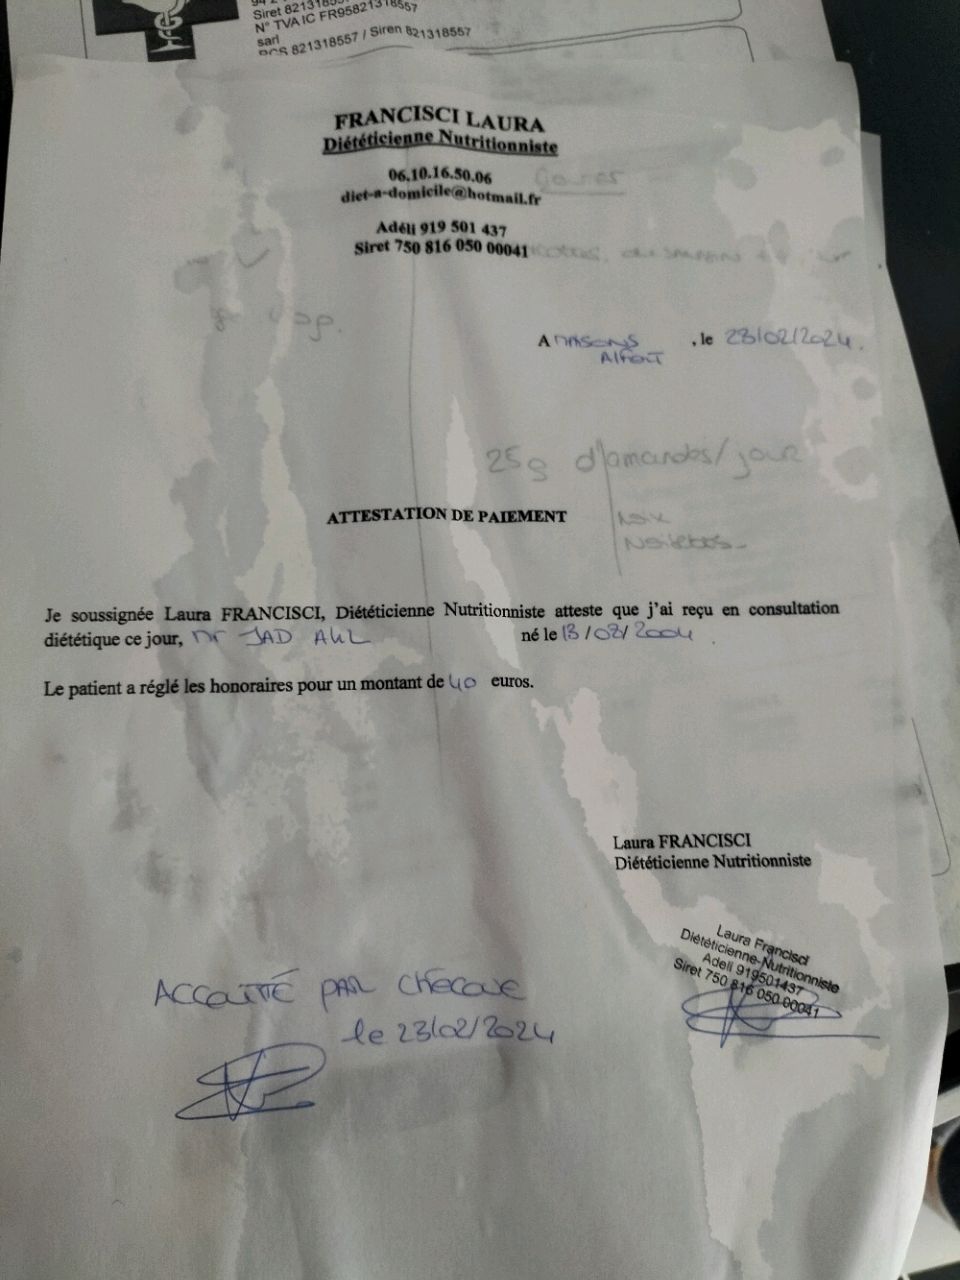 Siret 82131855
N° TVA IC FR95821318557
sarl
RCS 821318557 / Siren 821318557
FRANCISCI LAURA
Diététicienne Nutritionniste
06.10.16.50.06
diet-a-domicile@hotmail.fr
Adéli 919 501 437
Siret 750 816 050 00041
A MAISONS , le 23/02/2024.
Alfort
25g d'amandes/jour
noix
Noisettes
ATTESTATION DE PAIEMENT
Je soussignée Laura FRANCISCI, Diététicienne Nutritionniste atteste que j'ai reçu en consultation
diététique ce jour, Mr JAD AKL né le 13/08/2004.
Le patient a réglé les honoraires pour un montant de 40 euros.
Laura FRANCISCI
Diététicienne Nutritionniste
Laura Francisci
Diététicienne-Nutritionniste
Adeli 919501437
Siret 750 816 050 00041
ACCQUITTÉ PAR Chèque
le 23/02/2024